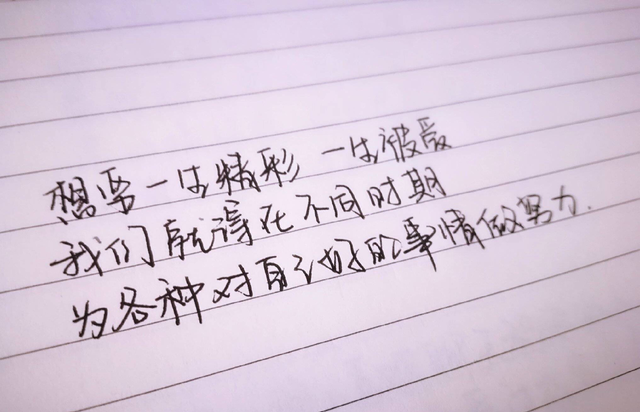 想要一生精彩 一生被爱
我们就得在不同时期
为各种对自己好的事情做努力.